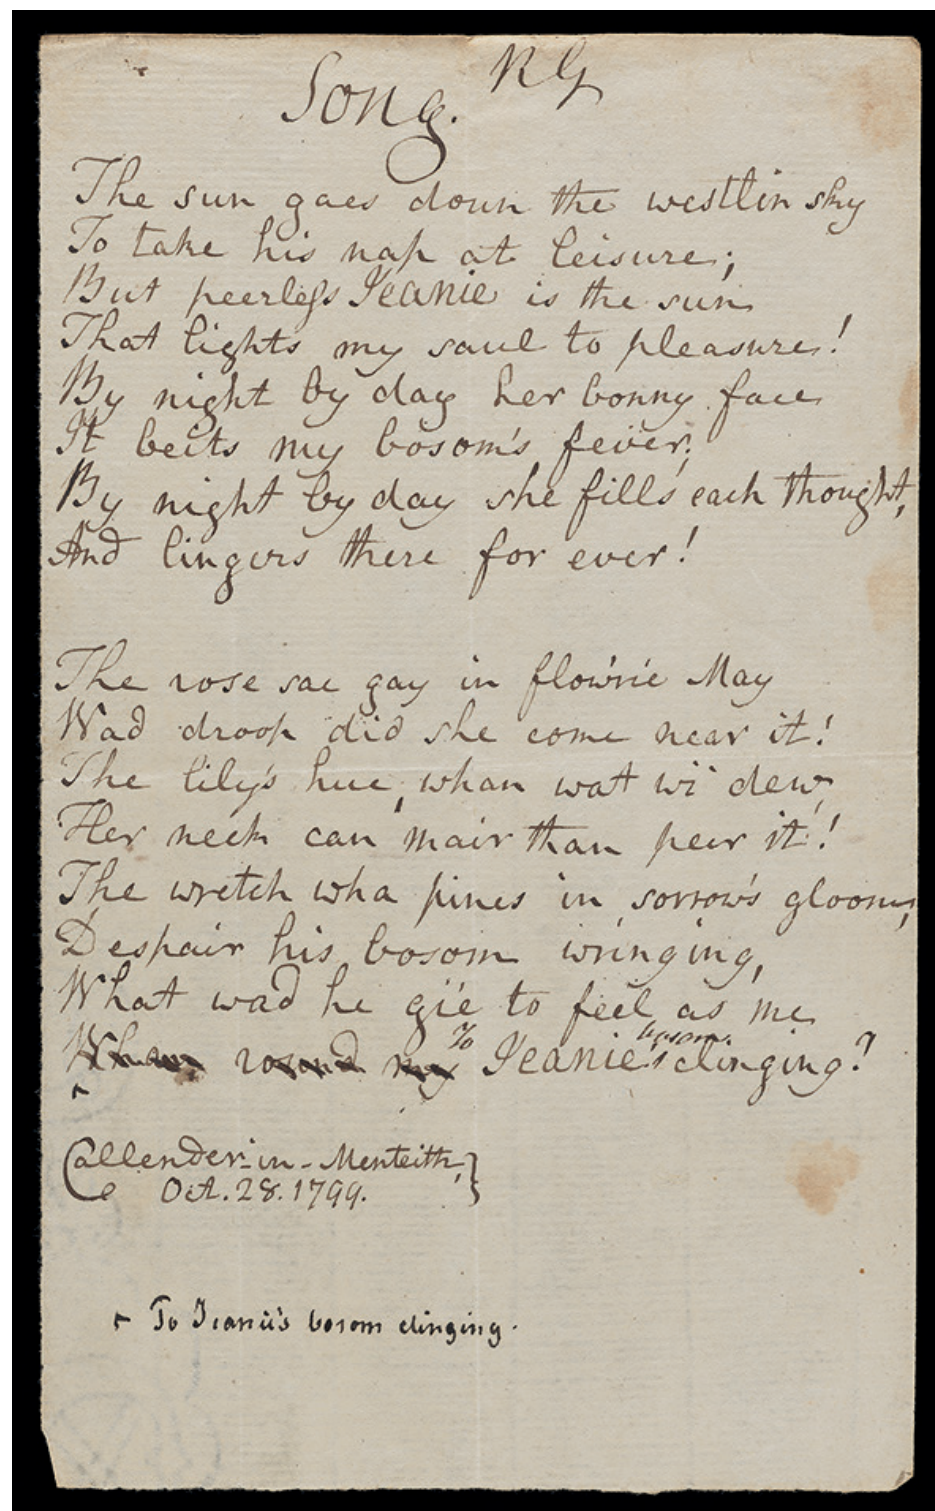 Song. RG
The sun gaes doun the westlin sky
To take his nap at leisure;
But peerleſs Jeanie is the sun
That lights my saul to pleasure!
By night by day her bonny face
It beits my bosom's fever;
By night by day she fills each thought,
And lingers there for ever!
The rose sae gay in flow'rie May
Wad droop did she come near it!
The lily's hue, whan wat wi' dew,
Her neck can mair than peer it!
The wretch wha pines in sorrow's gloom,
Despair his bosom wringing,
What wad he gi'e to feel as me
To bosom
Whan round my Jeanie's clinging?
Callender-in-Menteith,}
Oct. 28. 1799.
To Jeanie's bosom clinging.